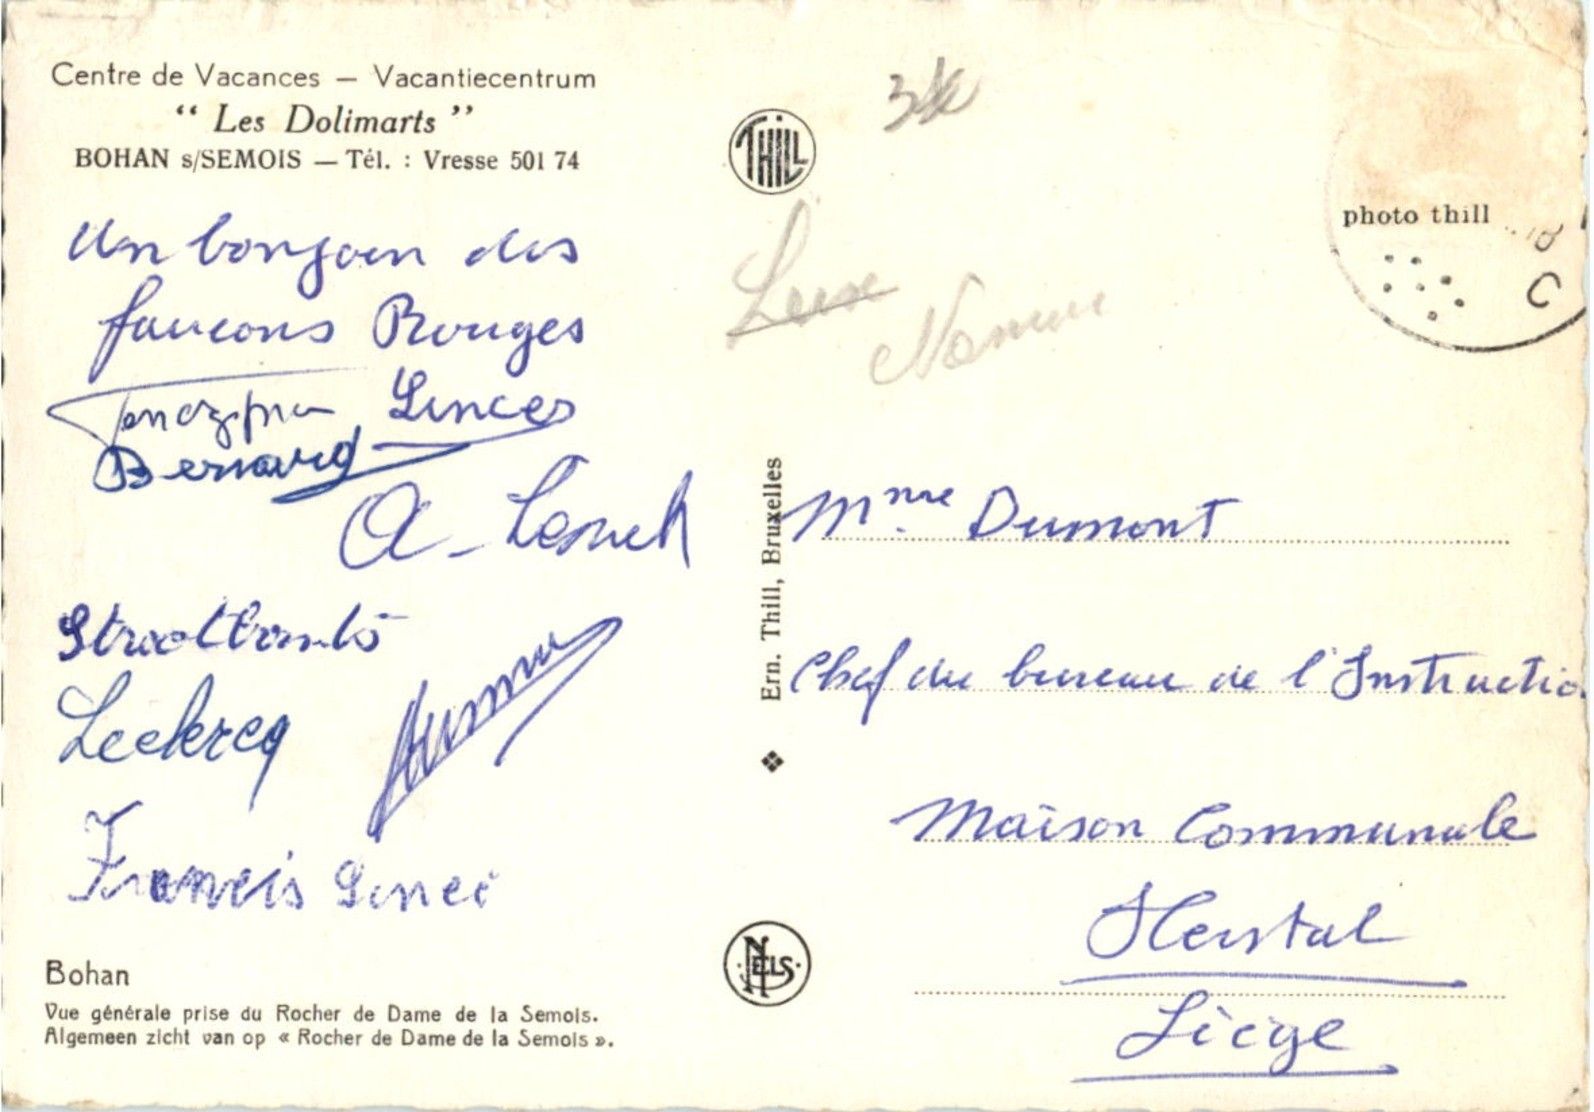 Centre de Vacances — Vacantiecentrum
“ Les Dolimarts ”
BOHAN s/SEMOIS — Tél. : Vresse 501 74
THILL
photo thill
C
Un bonjour des
faucons Rouges
Linces
Bernard
A-
Leclercq
Francis Linci
Namur
Ern. Thill, Bruxelles
Mme Dumont
Chef du bureau de l'Instruction
Maison Communale
Herstal
Liège
NELS
Bohan
Vue générale prise du Rocher de Dame de la Semois.
Algemeen zicht van op « Rocher de Dame de la Semois ».